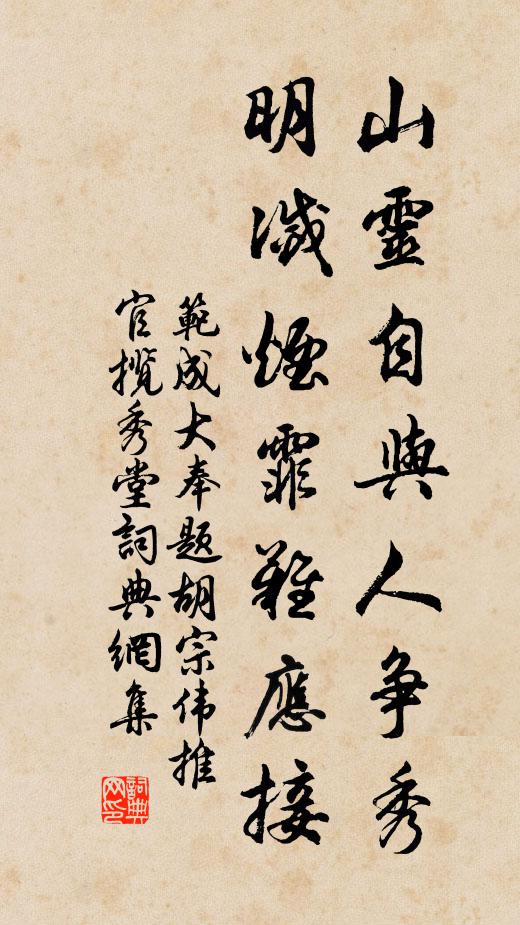 山靈自與人争秀
明滅煙霏難應接
範成大奉題胡宗伟推
官攬秀堂詞典網集
詞典
网印